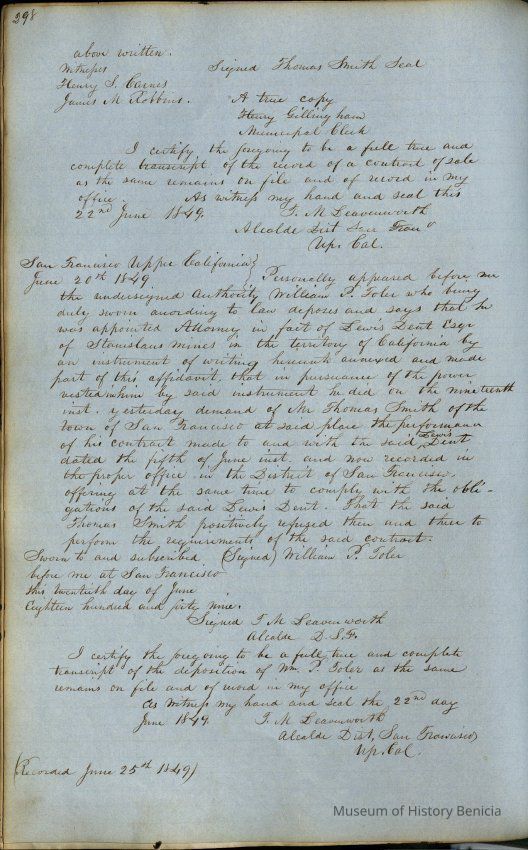 298
above written.
Witnesses Signed Thomas Smith Seal
Henry S. Carnes
James M Robbins. A true copy
Henry Gillingham
Municipal Clerk
I certify the foregoing to be a full true and
complete transcript of the record of a contract of sale
as the same remains on file and of record in my
office. As witness my hand and seal this
22nd June 1849. T. M Leavenworth
Alcalde Dist San Frano
Up. Cal.
San Francisco Upper California}
June 20th 1849 Personally appeared before me
the undersigned Authority William P. Toler who being
duly sworn according to law deposes and says that he
was appointed Attorney in fact of Lewis Dent Esqr
of Stanislaus mines in the territory of California by
an instrument of writing herewith annexed and made
part of this affidavit, that in pursuance of the power
vested in him by said instrument he did on the nineteenth
inst. yesterday demand of Mr Thomas Smith of the
town of San Francisco at said place the performance
of his contract made to and with the said Lewis Dent
dated the fifth of June inst. and now recorded in
the proper office in the District of San Francisco,
offering at the same time to comply with the obli-
gations of the said Lewis Dent. That the said
Thomas Smith positively refused then and there to
perform the requirements of the said contract.
Sworn to and subscribed (Signed) William P. Toler
before me at San Francisco
this twentieth day of June
Eighteen hundred and forty nine.
Signed T M Leavenworth
Alcalde D.S.F.
I certify the foregoing to be a full true and complete
transcript of the deposition of Wm. P. Toler as the same
remains on file and of record in my office
As witness my hand and seal the 22nd day
June 1849. T. M Leavenworth
Alcalde Dist, San Francisco
Up. Cal.
(Recorded June 25th 1849)
Museum of History Benicia